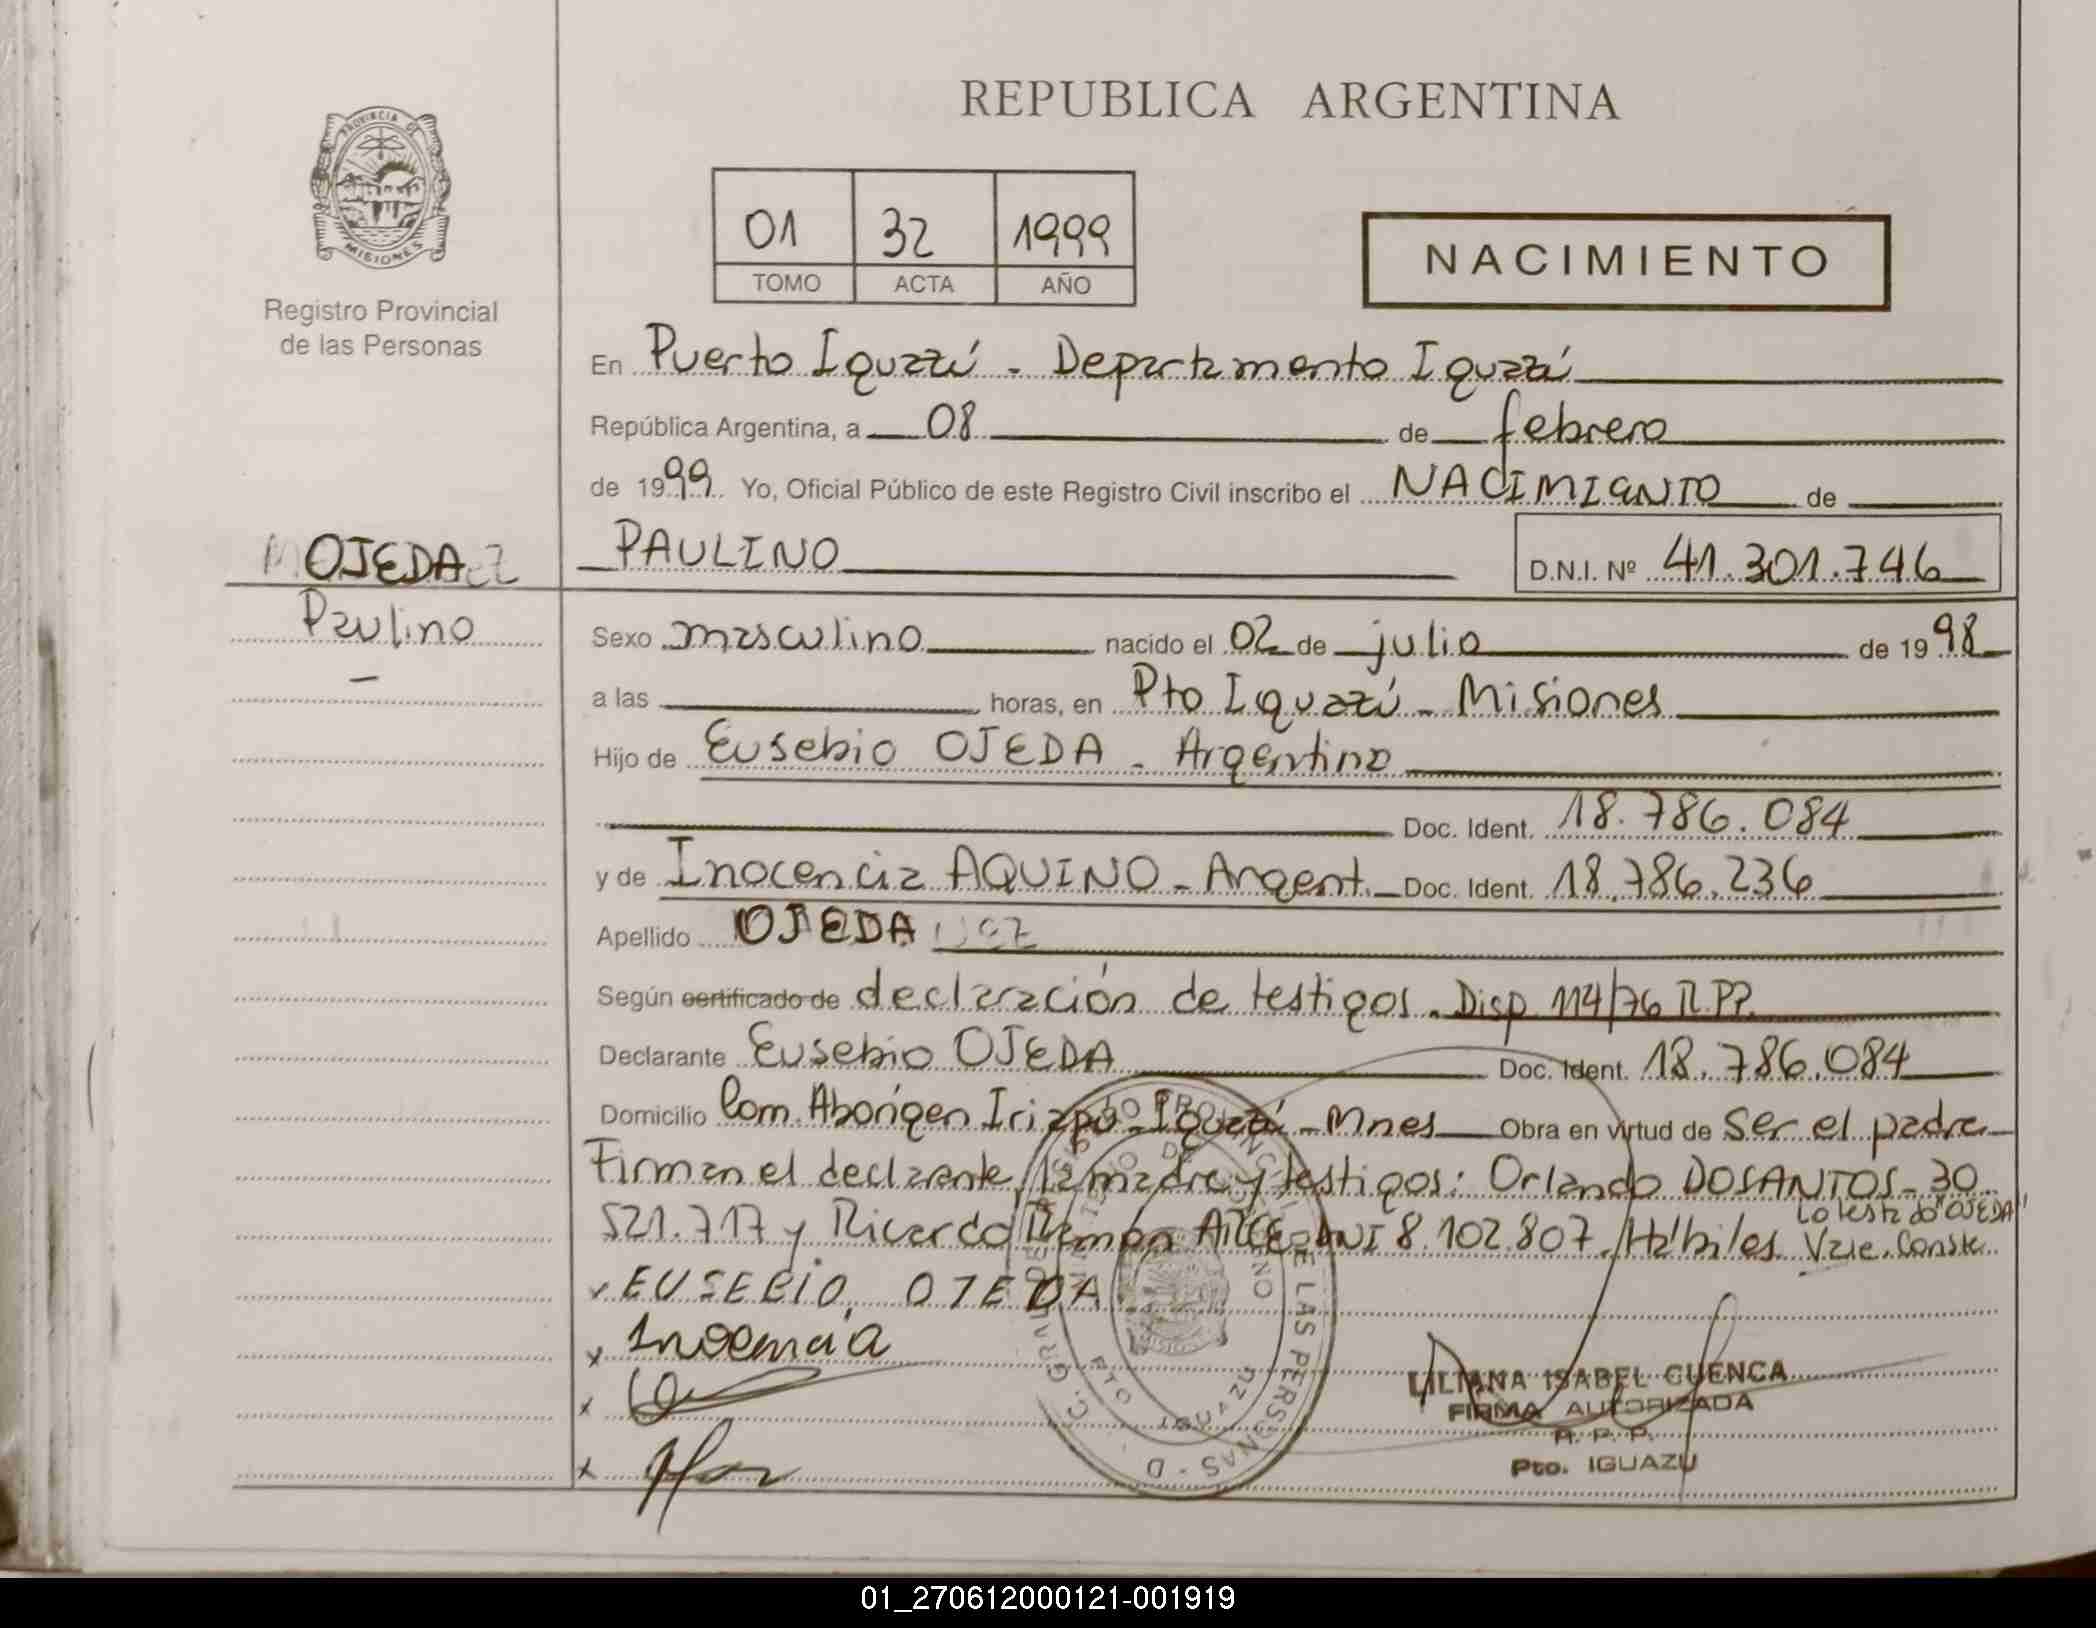 REPUBLICA ARGENTINA
PROVINCIA DE MISIONES
Registro Provincial
de las Personas
01 32 1999
TOMO ACTA AÑO
NACIMIENTO
En Puerto Iguazú - Departamento Iguazú
República Argentina, a 08 de febrero
de 1999. Yo, Oficial Público de este Registro Civil inscribo el NACIMIENTO de
OJEDA
PAULINO D.N.I. Nº 41.301.746
Paulino
Sexo masculino nacido el 02 de julio de 1998
a las horas, en Pto Iguazú - Misiones
Hijo de Eusebio OJEDA - Argentino
Doc. Ident. 18.786.084
y de Inocencia AQUINO - Argent. Doc. Ident. 18.786.236
Apellido OJEDA
Según certificado de declaración de testigos. Disp 114/76 R.P.P.
Declarante Eusebio OJEDA Doc. Ident. 18.786.084
Domicilio Com. Aborigen Iriapú - Iguazú - Mnes Obra en virtud de Ser el padre
Firman el declarante, la madre y testigos: Orlando DOSANTOS - 30.
521.717 y Ricardo Ramón ARCE DNI 8.102.807. Hábiles. Lo testado "OJEDA" Vale. Conste
x EUSEBIO OJEDA
x Inocencia
x
x
LILIANA ISABEL CUENCA
FIRMA AUTORIZADA
R. P. P.
Pto. IGUAZU
01_270612000121-001919